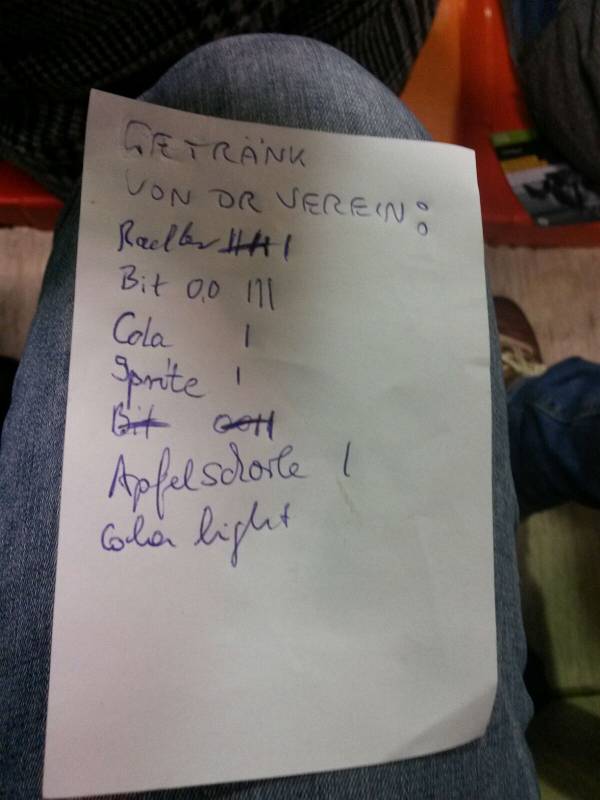 GETRÄNK
VON DR VEREIN:
Radler IIII I
Bit 0,0 III
Cola I
Sprite I
Bit 0,0 II
Apfelschorle I
Cola light